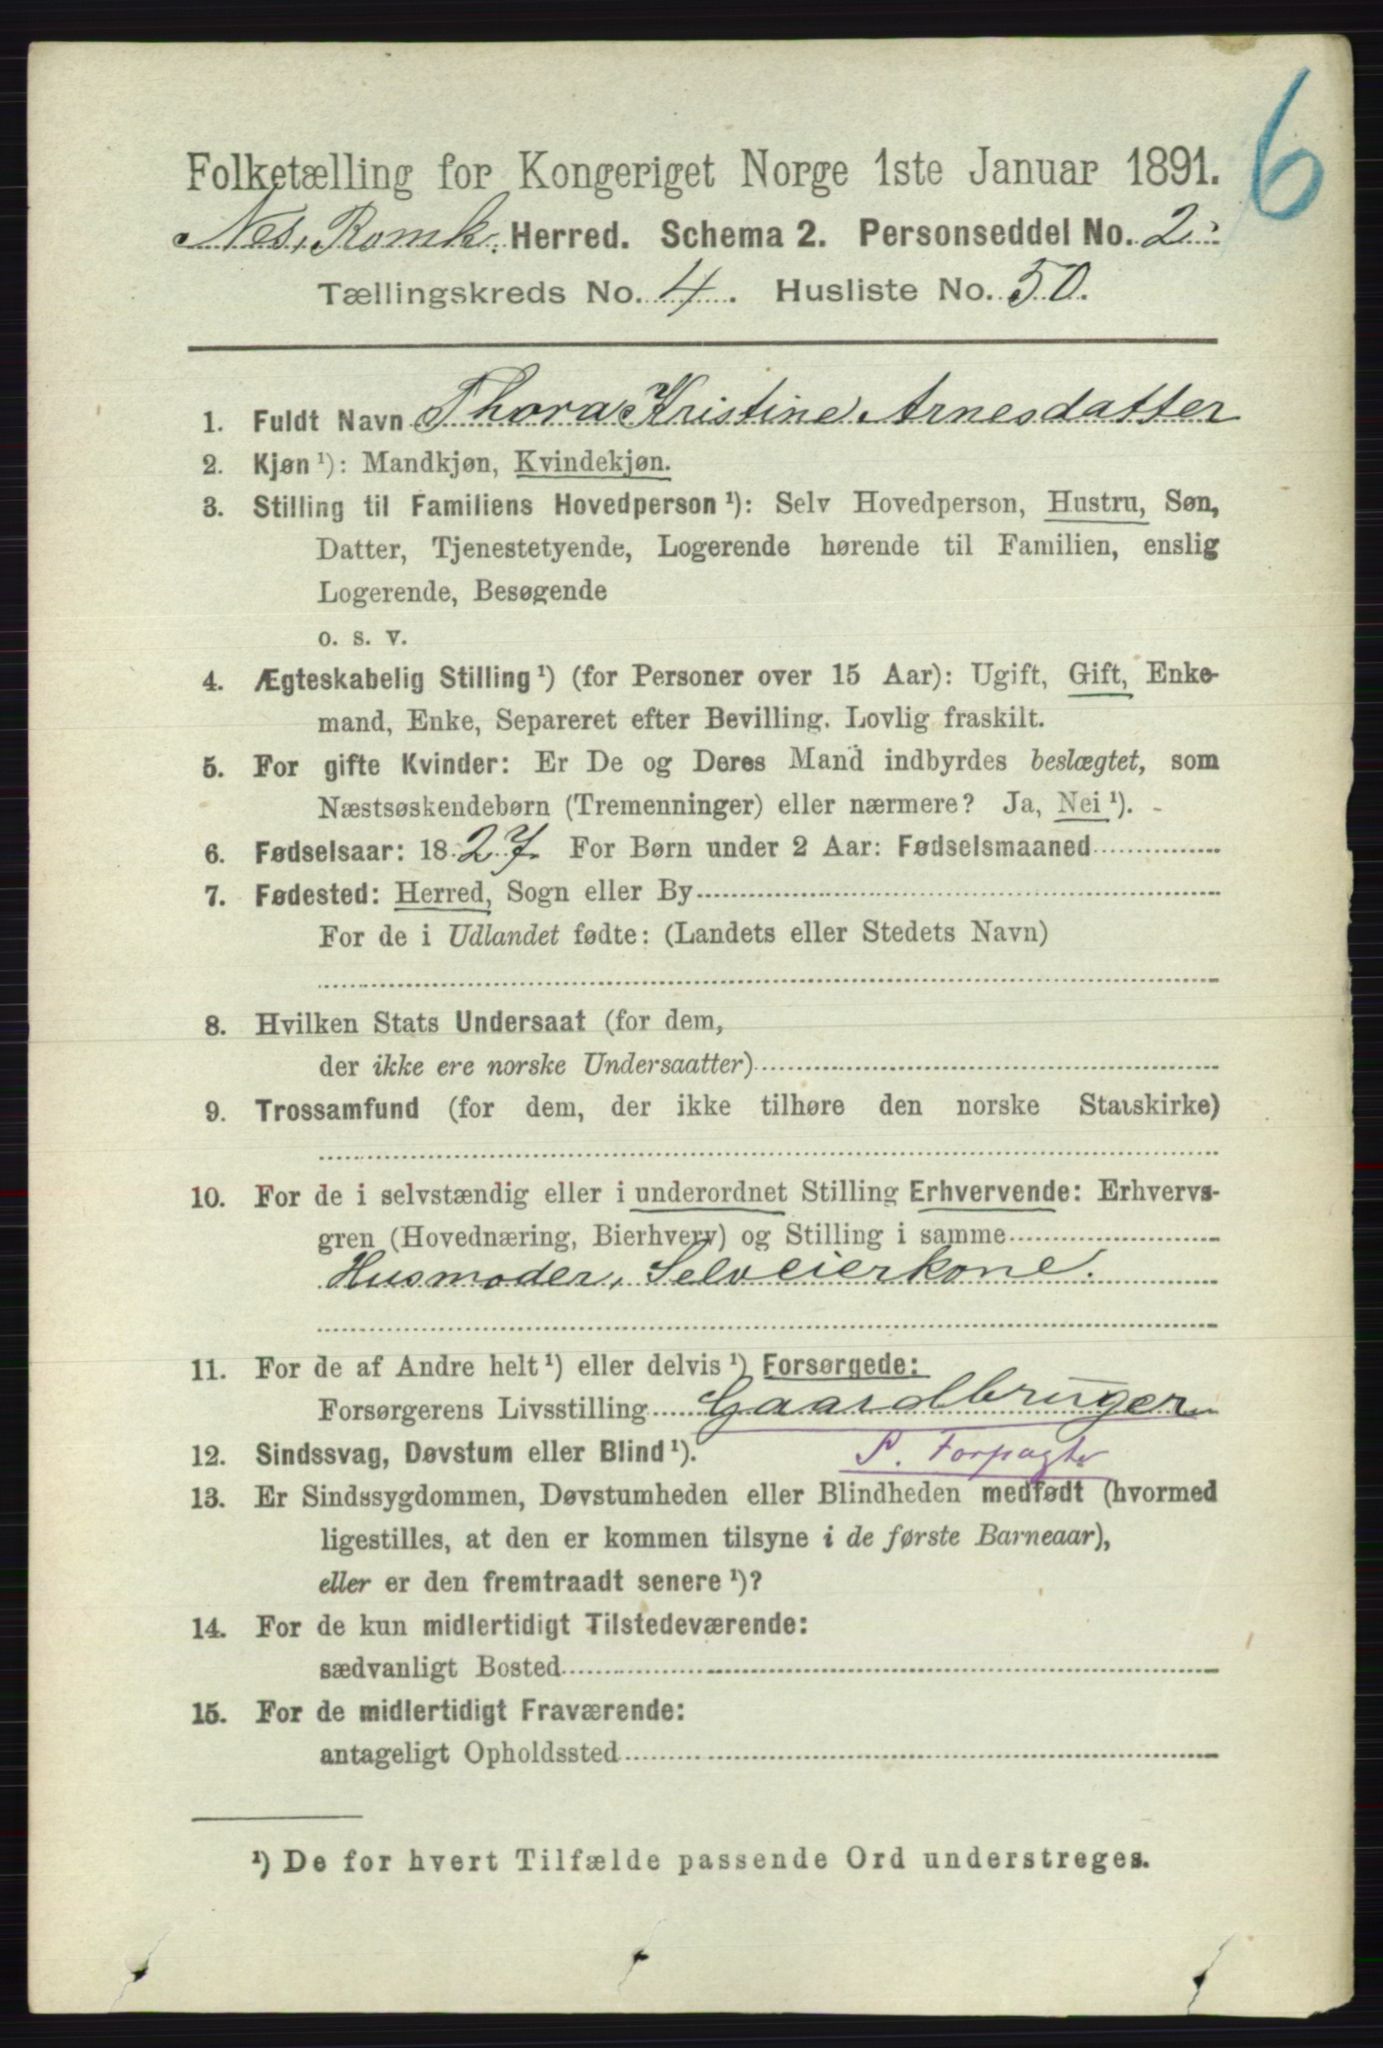 6
Folketælling for Kongeriget Norge 1ste Januar 1891.
Nes, Romk. Herred. Schema 2. Personseddel No. 2.
Tællingskreds No. 4. Husliste No. 50.
1. Fuldt Navn Thora Kristine Arnesdatter
2. Kjøn ¹): Mandkjøn, Kvindekjøn.
3. Stilling til Familiens Hovedperson ¹): Selv Hovedperson, Hustru, Søn,
Datter, Tjenestetyende, Logerende hørende til Familien, enslig
Logerende, Besøgende
o. s. v.
4. Ægteskabelig Stilling ¹) (for Personer over 15 Aar): Ugift, Gift, Enke-
mand, Enke, Separeret efter Bevilling. Lovlig fraskilt.
5. For gifte Kvinder: Er De og Deres Mand indbyrdes beslægtet, som
Næstsøskendebørn (Tremenninger) eller nærmere? Ja, Nei ¹).
6. Fødselsaar: 1827. For Børn under 2 Aar: Fødselsmaaned
7. Fødested: Herred, Sogn eller By
For de i Udlandet fødte: (Landets eller Stedets Navn)
8. Hvilken Stats Undersaat (for dem,
der ikke ere norske Undersaatter)
9. Trossamfund (for dem, der ikke tilhøre den norske Statskirke)
10. For de i selvstændig eller i underordnet Stilling Erhvervende: Erhvervs-
gren (Hovednæring, Bierhverv) og Stilling i samme
Husmoder, Selveierkone.
11. For de af Andre helt ¹) eller delvis ¹) Forsørgede:
Forsørgerens Livsstilling Gaardbruger
12. Sindssvag, Døvstum eller Blind ¹). Forpagter
13. Er Sindssygdommen, Døvstumheden eller Blindheden medfødt (hvormed
ligestilles, at den er kommen tilsyne i de første Barneaar),
eller er den fremtraadt senere ¹)?
14. For de kun midlertidigt Tilstedeværende:
sædvanligt Bosted
15. For de midlertidigt Fraværende:
antageligt Opholdssted
¹) De for hvert Tilfælde passende Ord understreges.